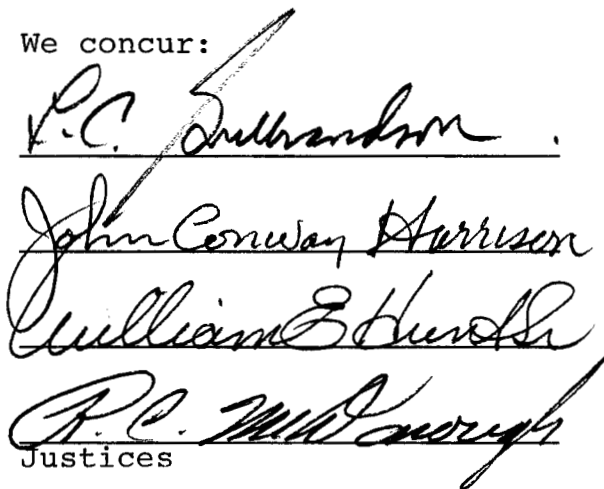 We concur:
L.C. Gulbrandson
John Conway Harrison
William E Hunt Sr
R. C. McDonough
Justices